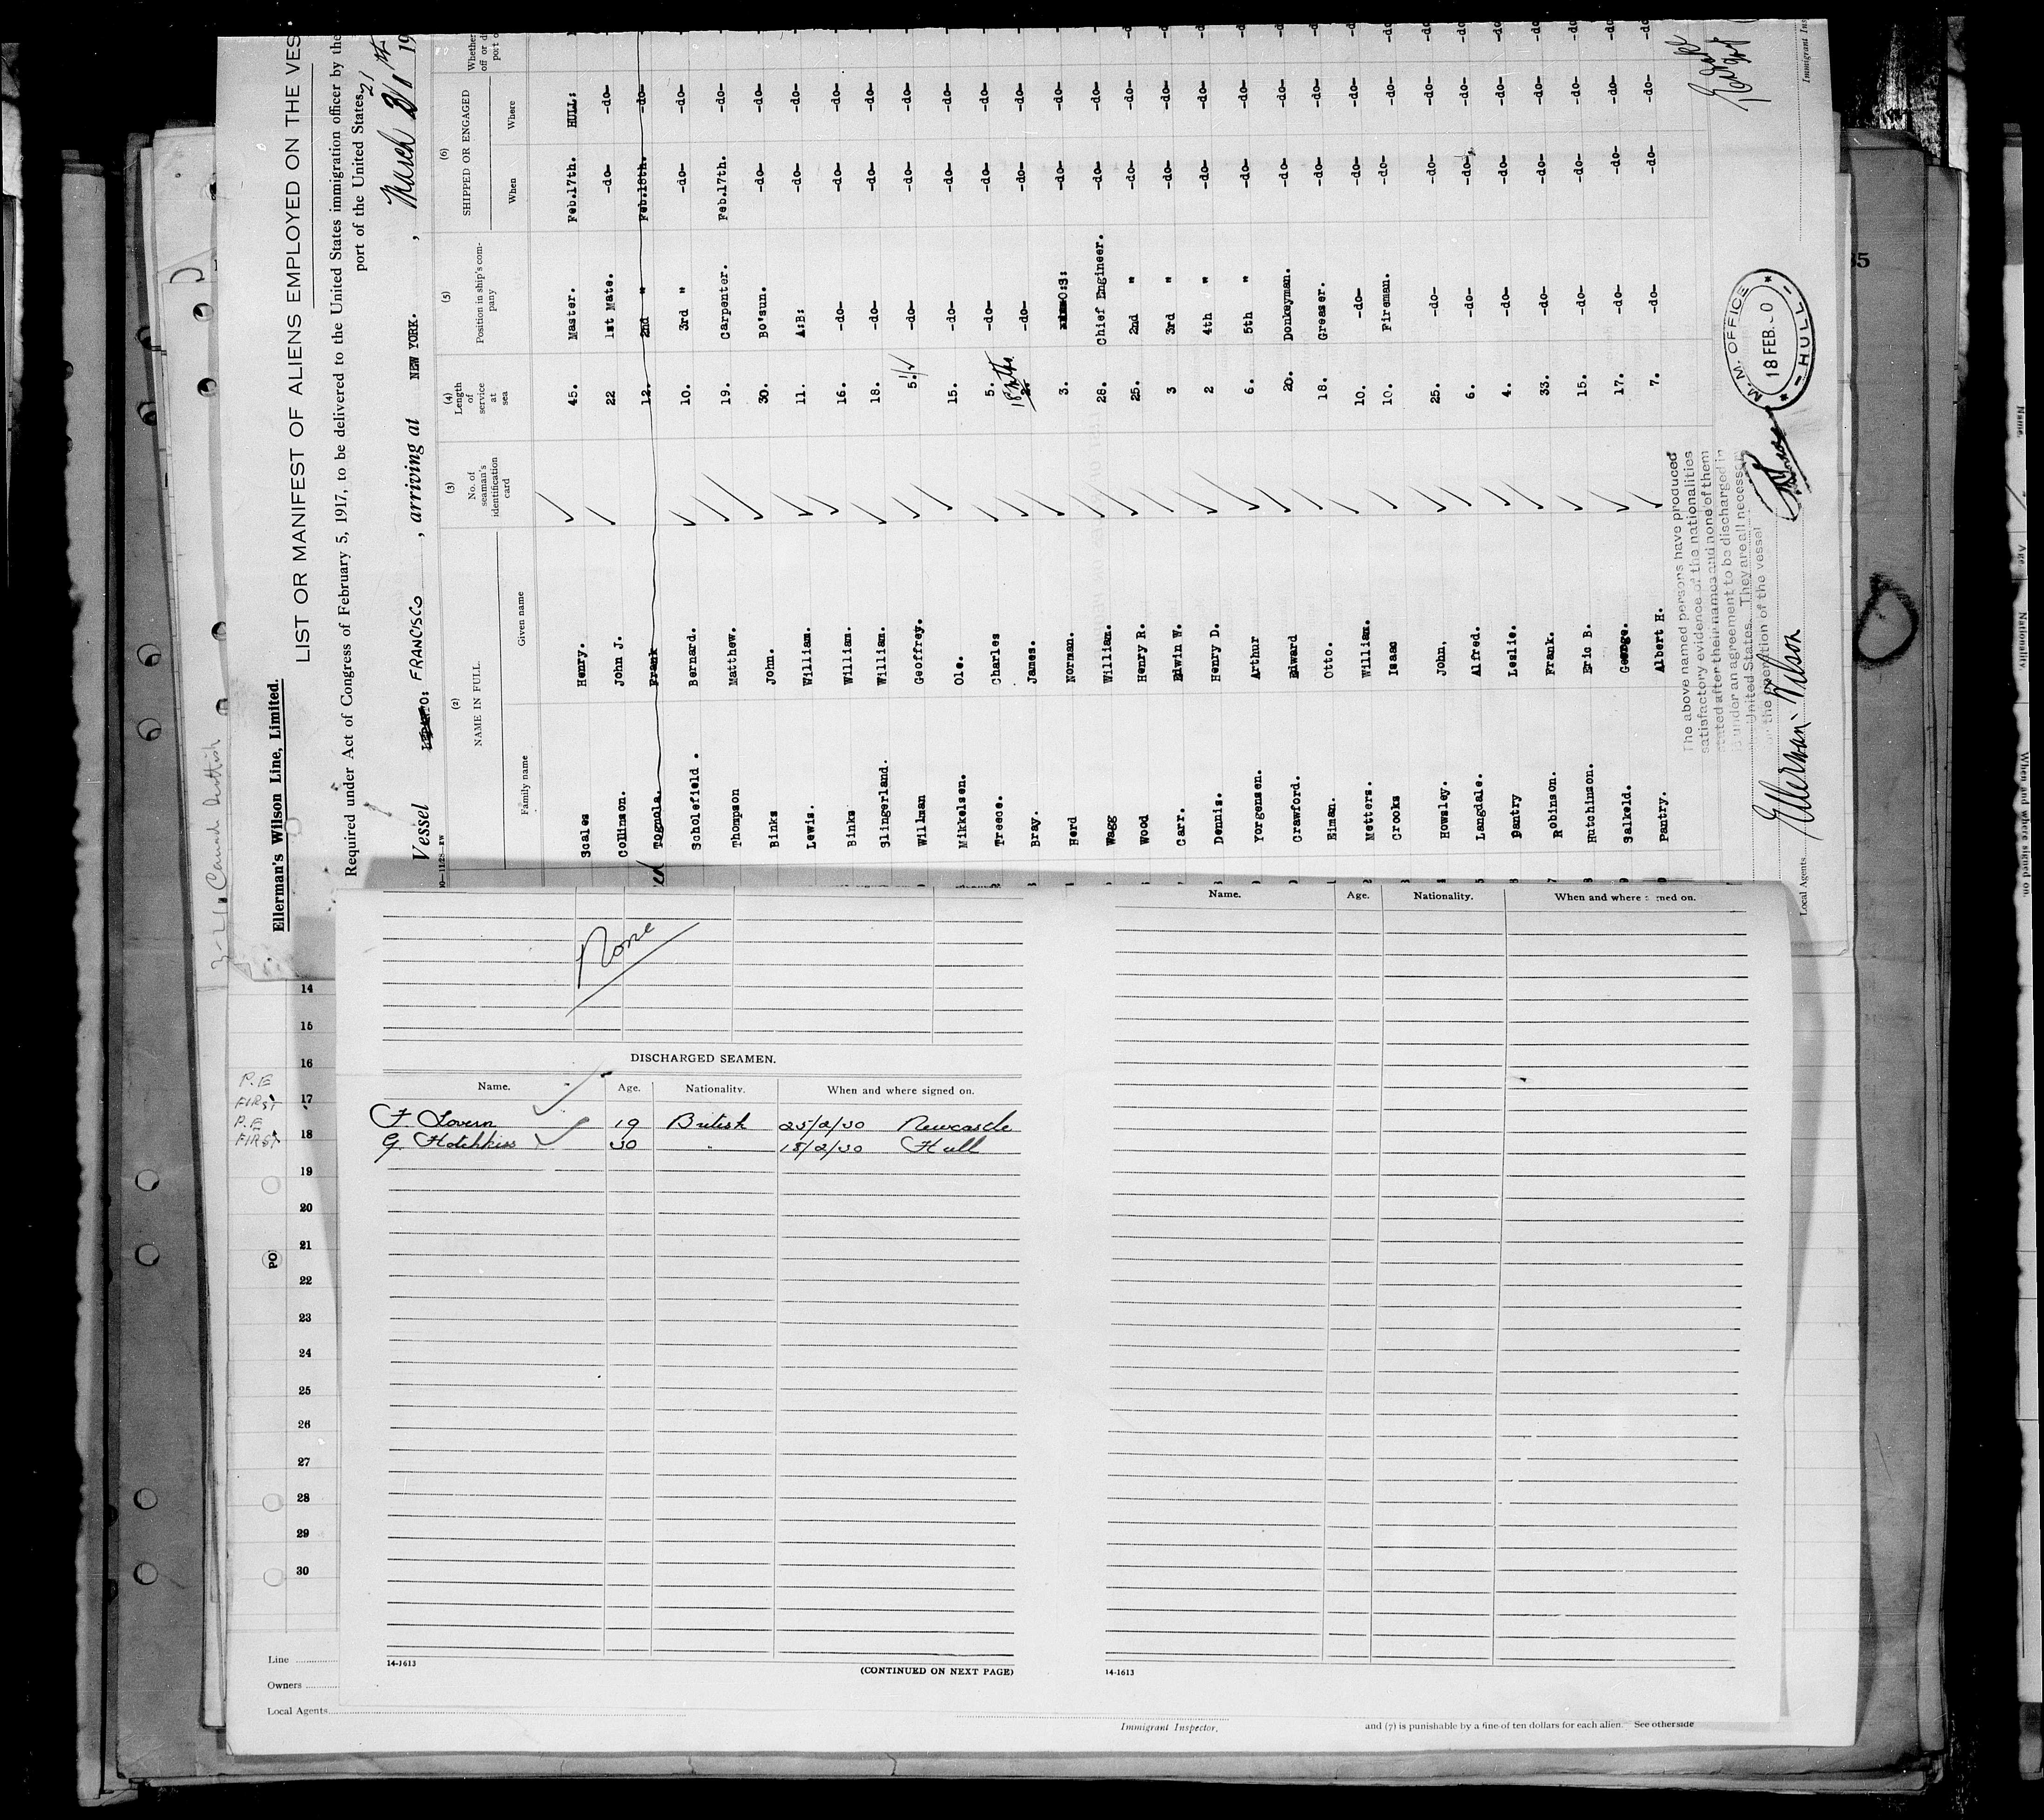 Ellerman's Wilson Line, Limited.
LIST OR MANIFEST OF ALIENS EMPLOYED ON THE VES
Required under Act of Congress of February 5, 1917, to be delivered to the United States immigration officer by the
port of the United States
Vessel FRANCISCO , arriving at NEW YORK. , March 21 st 19
(2) (3) (4) (5) (6)
NAME IN FULL No. of seaman's identification card Length of service at sea Position in ship's com-pany SHIPPED OR ENGAGED Whether
Family name Given name When Where
Scales Henry. 45. Master. Feb.17th. HULL:
Collinson. John J. 22 1st Mate. -do- -do-
Tognola. Frank 12. 2nd " Feb.18th. -do-
Scholefield . Bernard. 10. 3rd " -do- -do-
Thompson Matthew. 19. Carpenter. Feb.17th. -do-
Binks John. 30. Bo'sun. -do- -do-
Lewis. William. 11. A:B: -do- -do-
Binks William. 16. -do- -do- -do-
Slingerland. William. 18. -do- -do- -do-
Willman Geoffrey. 5. -do- -do- -do-
Mikkelsen. Ole. 15. -do- -do- -do-
Treece. Charles 5. -do- -do- -do-
Bray. James. 18 mths. -do- -do- -do-
Herd Norman. 3. O:S: -do- -do-
Wagg William. 28. Chief Engineer. -do- -do-
Wood Henry R. 25. 2nd " -do- -do-
Carr. Edwin W. 3 3rd " -do- -do-
Dennis. Henry D. 2 4th " -do- -do-
Yorgensen. Arthur 6. 5th " -do- -do-
Crawford. Edward 20. Donkeyman. -do- -do-
Eiman. Otto. 18. Greaser. -do- -do-
Metters. William. 10. -do- -do- -do-
Crooks Isaac 10. Fireman. -do- -do-
Howsley. John. 25. -do- -do- -do-
Langdale. Alfred. 6. -do- -do- -do-
Pantry Leslie. 4. -do- -do- -do-
Robinson. Frank. 33. -do- -do- -do-
Hutchinson. Eric B. 15. -do- -do- -do-
Salkeld. George. 17. -do- -do- -do-
Pantry. Albert H. 7. -do- -do- -do-
The above named persons have produced
satisfactory evidence of the nationalities
stated after their names and none of them
is under an agreement to be discharged in
United States. They are all necessary
the operation of the vessel
M.M. OFFICE
18 FEB. 30
HULL
Local Agents Ellerman's Wilson
Immigrant Ins
None
DISCHARGED SEAMEN.
Name. Age. Nationality. When and where signed on.
F. Lovern 19 British 25/2/30 Newcastle
G. Hotchkiss 30 " 18/2/30 Hull
14-1613 (CONTINUED ON NEXT PAGE)
Name. Age. Nationality. When and where signed on.
14-1613
14
15
16
P.E FIRST 17
P.E FIRST 18
19
20
21
22
23
24
25
26
27
28
29
30
Line
Owners
Local Agents
Immigrant Inspector.
and (7) is punishable by a fine of ten dollars for each alien. See otherside